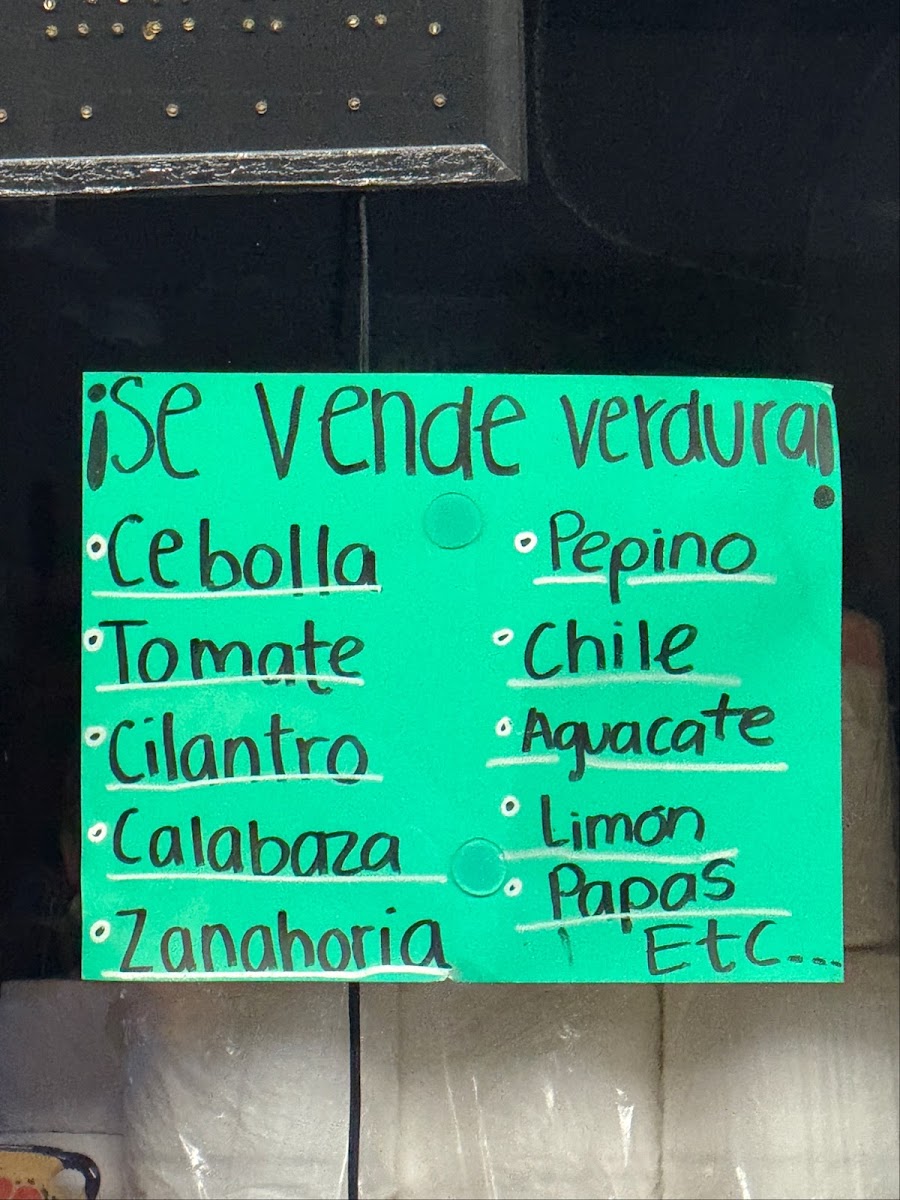 ¡Se Vende verdura!
• Cebolla
• Tomate
• Cilantro
• Calabaza
• Zanahoria
• Pepino
• Chile
• Aguacate
• Limón
• Papas
Etc...